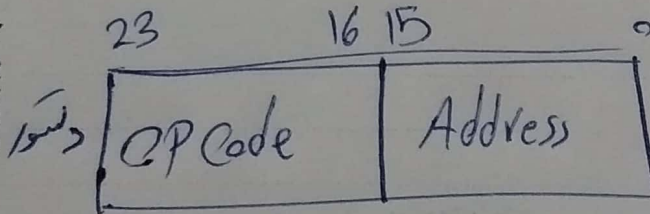 23 16 15 0
دستور OP Code Address